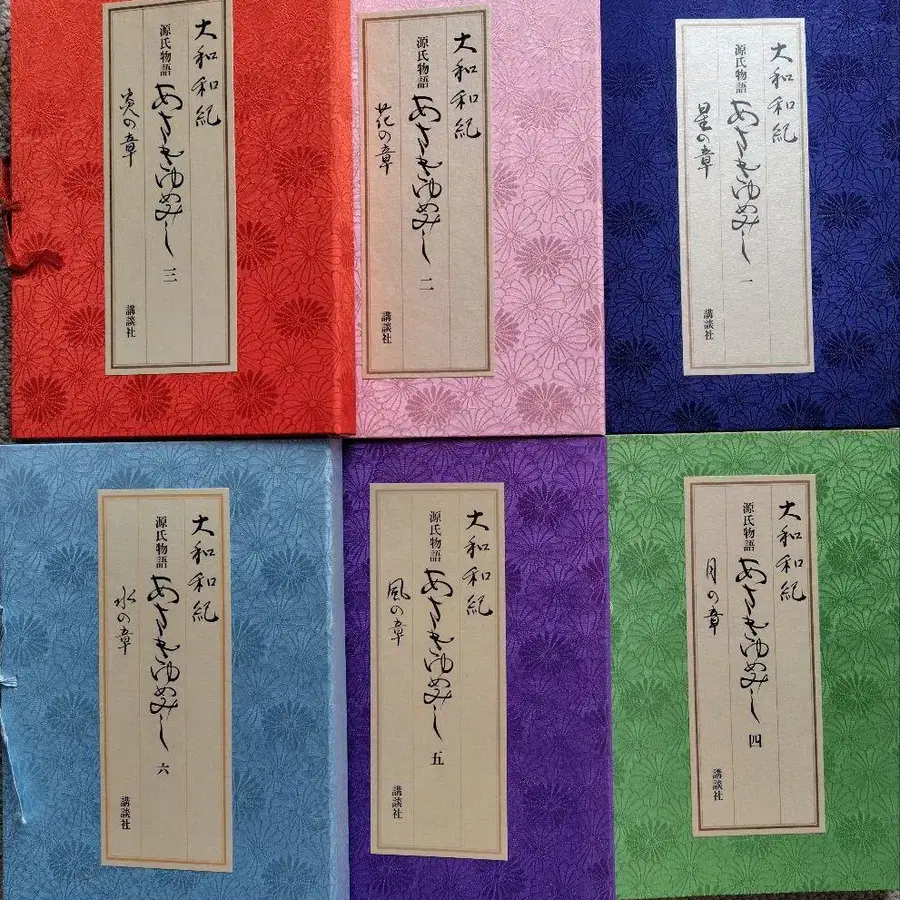 大和和紀
源氏物語
あさきゆめみし 一
星の章
講談社
大和和紀
源氏物語
あさきゆめみし 二
花の章
講談社
大和和紀
源氏物語
あさきゆめみし 三
炎の章
講談社
大和和紀
源氏物語
あさきゆめみし 四
月の章
講談社
大和和紀
源氏物語
あさきゆめみし 五
風の章
講談社
大和和紀
源氏物語
あさきゆめみし 六
水の章
講談社